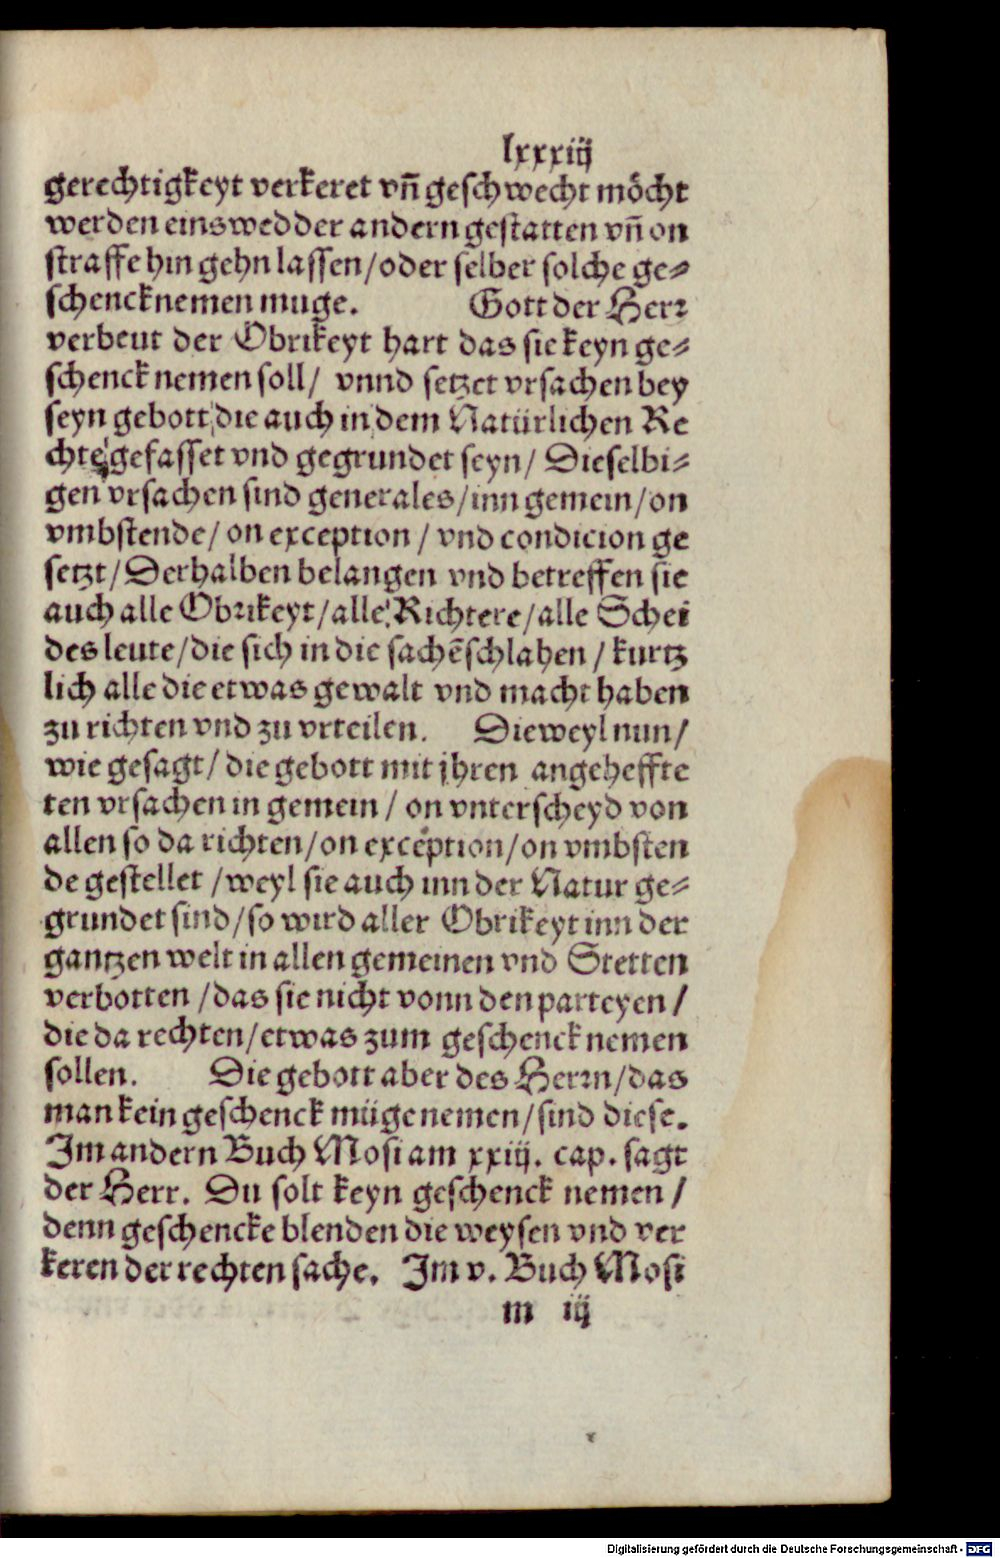 lxxxiij
gerechtigkeyt verkeret vñ geschwecht möcht
werden eins wedder andern gestatten vñ on
straffe hin gehn lassen/oder selber solche ge⸗
schenck nemen muge. Gott der Herr
verbeut der Obrikeyt hart das sie keyn ge⸗
schenck nemen soll/ vnnd setzet vrsachen bey
seyn gebott die auch in dem Natürlichen Re
chte gefasset vnd gegrundet seyn/ Dieselbi⸗
gen vrsachen sind generales/inn gemein/on
vmbstende/ on exception / vnd condicion ge
setzt/Derhalben belangen vnd betreffen sie
auch alle Obrikeyt/alle Richtere/alle Schei
des leute/die sich in die sachē schlahen / kurtz
lich alle die etwas gewalt vnd macht haben
zu richten vnd zu vrteilen. Dieweyl nun/
wie gesagt/ die gebott mit jhren angeheffte
ten vrsachen in gemein / on vnterscheyd von
allen so da richten/on exception/on vmbsten
de gestellet /weyl sie auch inn der Natur ge⸗
grundet sind/so wird aller Obrikeyt inn der
gantzen welt in allen gemeinen vnd Stetten
verbotten /das sie nicht vonn den parteyen /
die da rechten/etwas zum geschenck nemen
sollen. Die gebott aber des Herrn/das
man kein geschenck müge nemen/sind diese.
Im andern Buch Mosi am xxiij. cap. sagt
der Herr. Du solt keyn geschenck nemen /
denn geschencke blenden die weysen vnd ver
keren der rechten sache. Im v. Buch Mosi
m iij
Digitalisierung gefördert durch die Deutsche Forschungsgemeinschaft - DFG